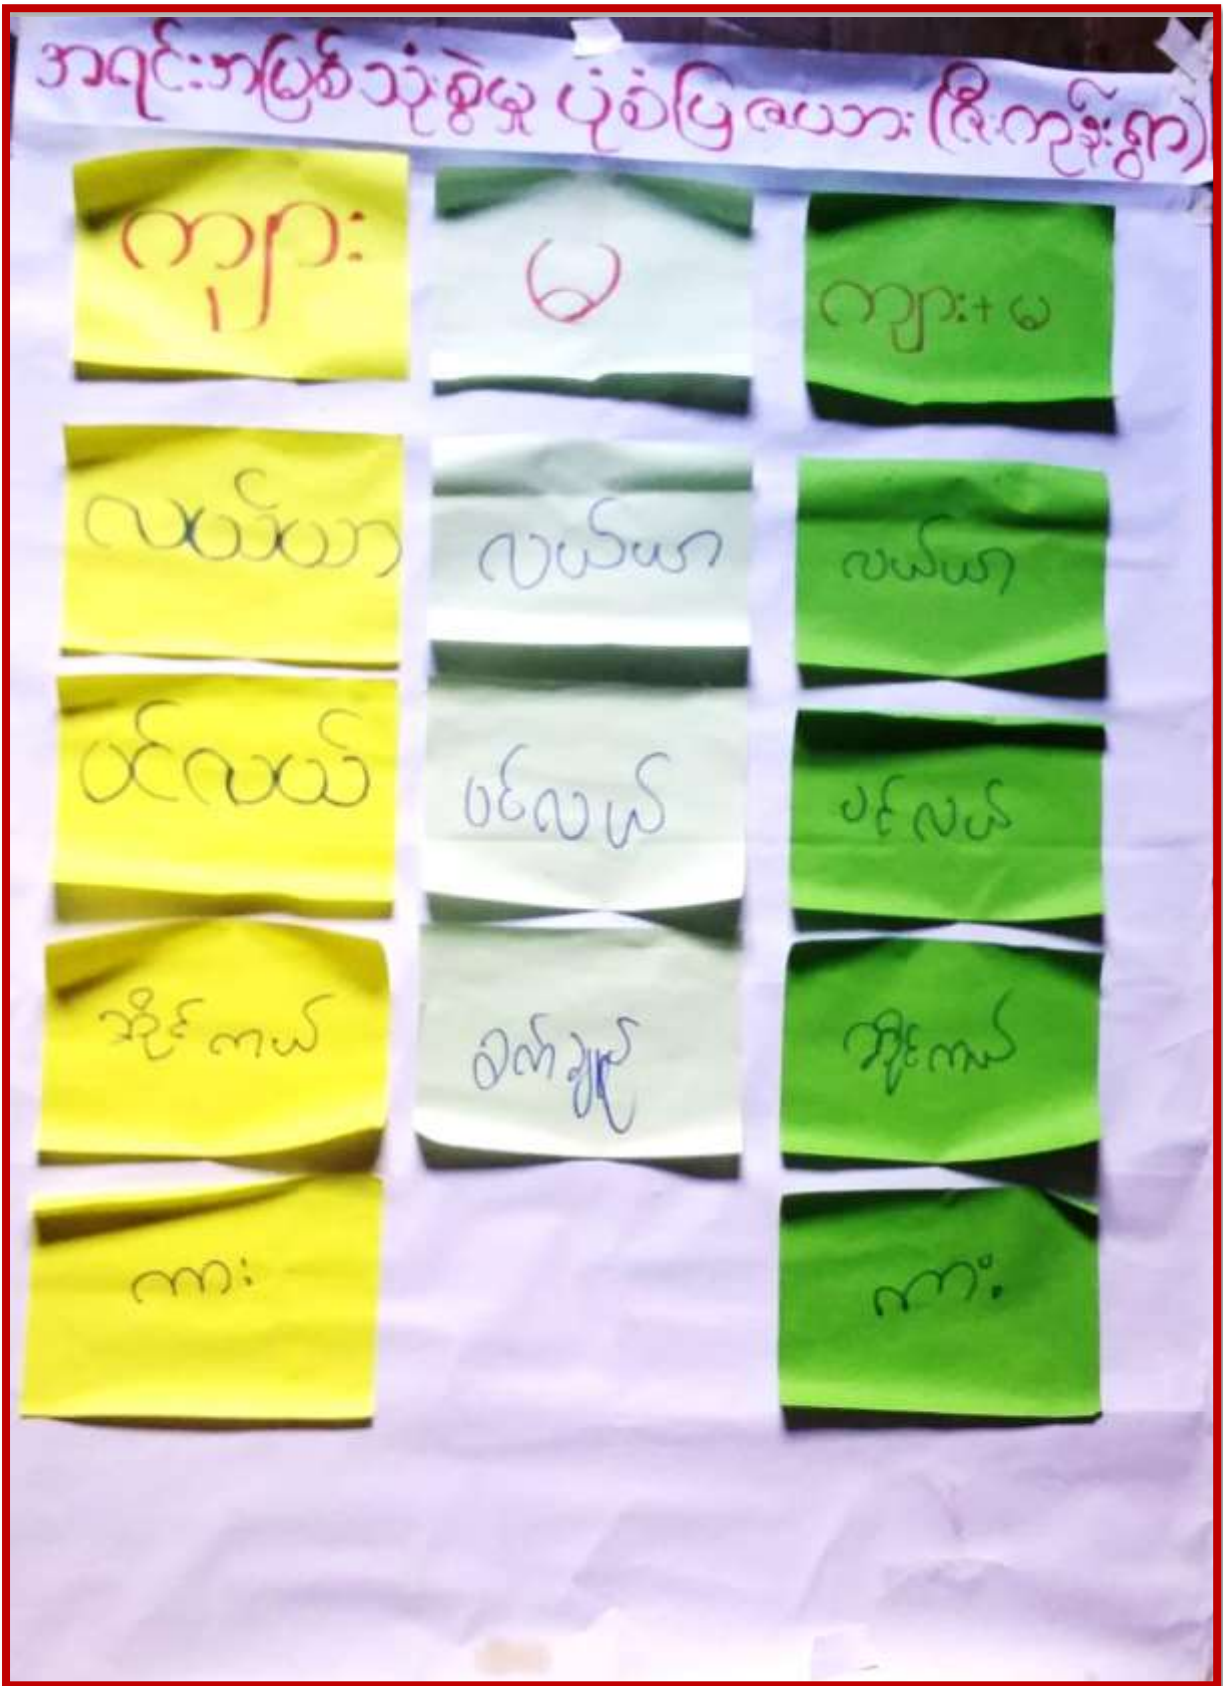 အရင်းအမြစ်သုံးစွဲမှု ပုံစံပြဇယား (ဇီးကုန်းရွာ)
ကျား မ ကျား+မ
လယ်ယာ လယ်ယာ လယ်ယာ
ပင်လယ် ပင်လယ် ပင်လယ်
ဆိုင်ကယ် စက်ချုပ် ဆိုင်ကယ်
ကား ကား